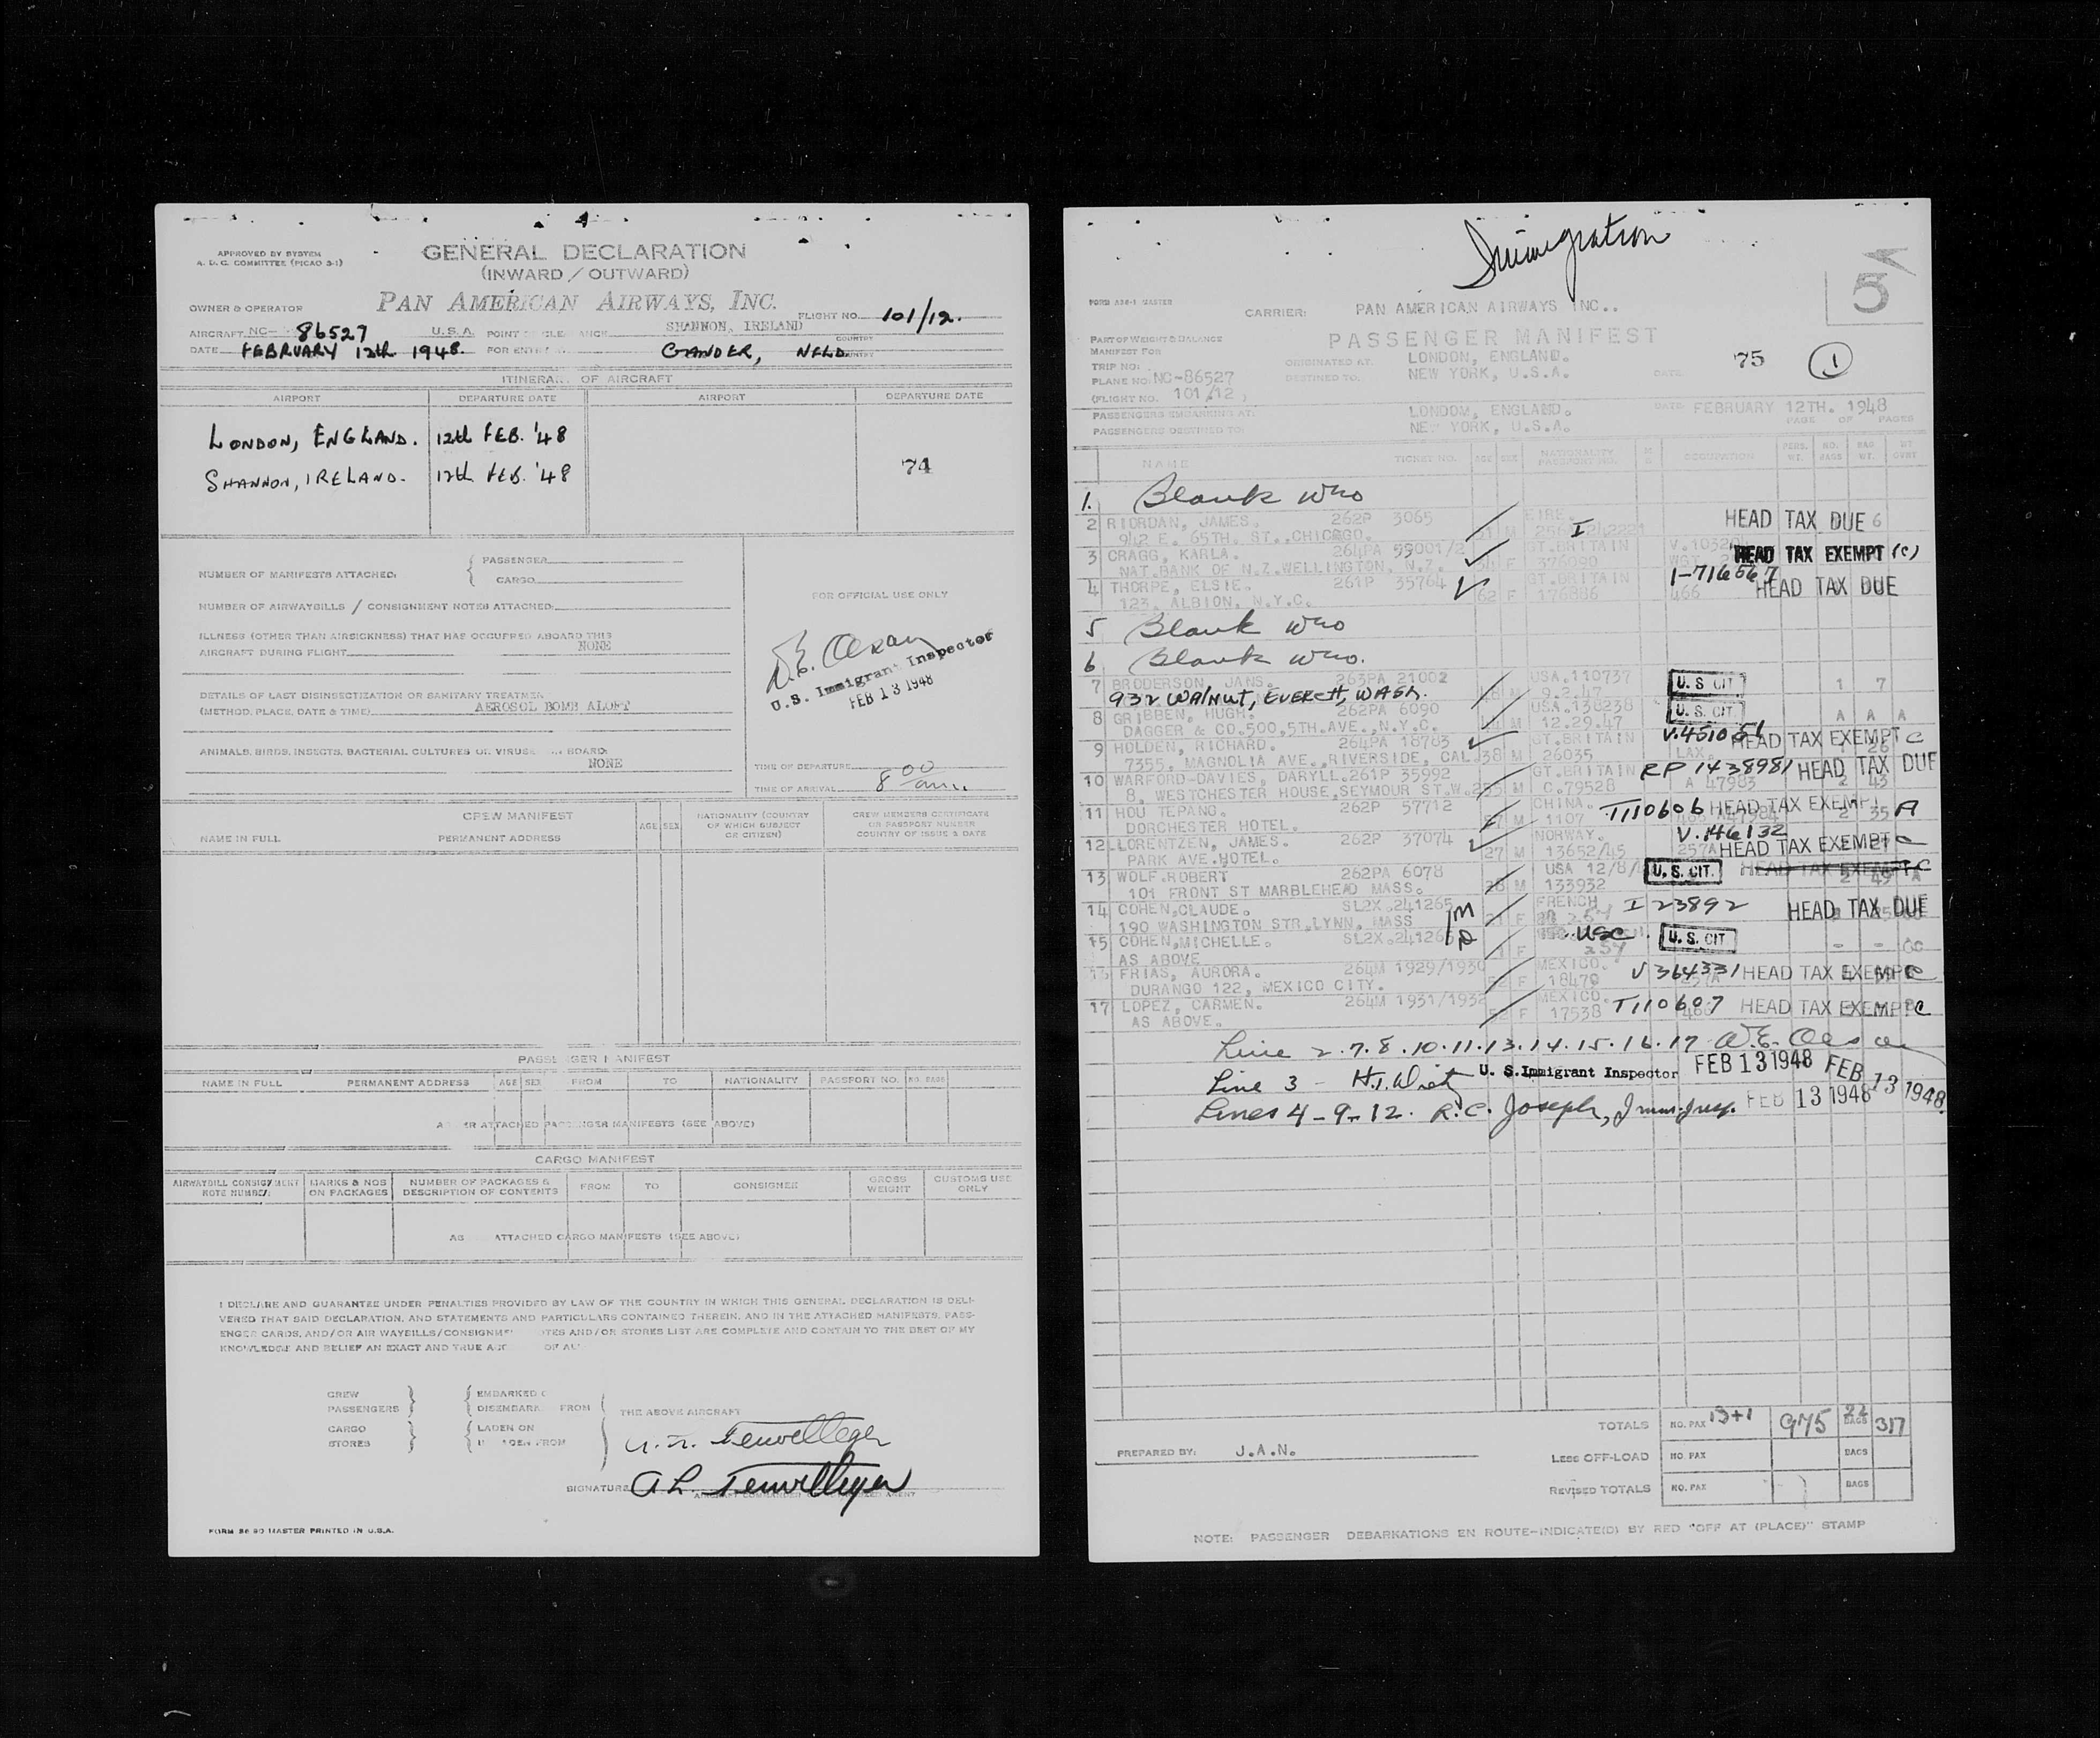 APPROVED BY SYSTEM
A. D. C. COMMITTEE (PICAO 3-1)
GENERAL DECLARATION
(INWARD / OUTWARD)
OWNER & OPERATOR
PAN AMERICAN AIRWAYS, INC.
FLIGHT NO. 101/12.
AIRCRAFT NC- 86527 U.S.A. POINT SHANNON, IRELAND
COUNTRY
DATE FEBRUARY 12th 1948. FOR GANDER, NFLD.
COUNTRY
OF AIRCRAFT
AIRPORT DEPARTURE DATE AIRPORT DEPARTURE DATE
LONDON, ENGLAND. 12th FEB. '48
SHANNON, IRELAND. 12th FEB. '48
74
NUMBER OF MANIFESTS ATTACHED:
PASSENGER
CARGO
NUMBER OF AIRWAYBILLS / CONSIGNMENT NOTES ATTACHED:
FOR OFFICIAL USE ONLY
ILLNESS (OTHER THAN AIRSICKNESS) THAT HAS OCCURRED ABOARD THIS
AIRCRAFT DURING FLIGHT NONE
U.S. Immigrant Inspector
FEB 13 1948
DETAILS OF LAST DISINSECTIZATION OR SANITARY
(METHOD, PLACE, DATE & TIME) AEROSOL BOMB ALOFT
ANIMALS, BIRDS, INSECTS, BACTERIAL CULTURES OR BOARD:
NONE
TIME OF DEPARTURE
TIME OF ARRIVAL 8 00 am.
CREW MANIFEST
NAME IN FULL PERMANENT ADDRESS AGE SEX NATIONALITY (COUNTRY OF WHICH SUBJECT OR CITIZEN) CREW MEMBERS CERTIFICATE OR PASSPORT NUMBER COUNTRY OF ISSUE & DATE
MANIFEST
NAME IN FULL PERMANENT ADDRESS AGE SEX FROM TO NATIONALITY PASSPORT NO. NO. BAGS
ATTACHED MANIFESTS (SEE ABOVE)
CARGO MANIFEST
AIRWAYBILL CONSIGNMENT NOTE NUMBER MARKS & NOS ON PACKAGES NUMBER OF PACKAGES & DESCRIPTION OF CONTENTS FROM TO CONSIGNEE GROSS WEIGHT CUSTOMS USE ONLY
AS ATTACHED CARGO MANIFESTS (SEE ABOVE)
I DECLARE AND GUARANTEE UNDER PENALTIES PROVIDED BY LAW OF THE COUNTRY IN WHICH THIS GENERAL DECLARATION IS DELI-
VERED THAT SAID DECLARATION, AND STATEMENTS AND PARTICULARS CONTAINED THEREIN, AND IN THE ATTACHED MANIFESTS, PASS-
ENGER CARDS, AND/OR AIR WAYBILLS/ AND/OR STORES LIST ARE COMPLETE AND CONTAIN TO THE BEST OF MY
KNOWLEDGE AND BELIEF AN EXACT AND TRUE
CREW
PASSENGERS
CARGO
STORES
EMBARKED
FROM
LADEN ON
THE ABOVE AIRCRAFT
SIGNATURE
FORM 86 90 MASTER PRINTED IN U.S.A.
Immigration
5
CARRIER: PAN AMERICAN AIRWAYS INC..
PASSENGER MANIFEST
PART OF WEIGHT & BALANCE
MANIFEST FOR
TRIP NO:
PLANE NO: NC-86527
(FLIGHT NO. 101/12 )
ORIGINATED AT: LONDON, ENGLAND.
DESTINED TO: NEW YORK, U.S.A.
DATE
75 1
PASSENGERS EMBARKED AT: LONDON, ENGLAND. DATE FEBRUARY 12TH. 1948
PASSENGERS DESTINED TO: NEW YORK, U.S.A. PAGE OF PAGES
NAME TICKET NO. AGE SEX NATIONALITY PASSPORT NO. OCCUPATION PERS. WT. NO. BAGS BAG. WT.
1. Blank
2 RIORDAN, JAMES. 262P 3065 M EIRE. I HEAD TAX DUE 6
942 E. 65TH. ST.,CHICAGO.
3 CRAGG, KARLA. 264PA 59001/2 F GT.BRITAIN 376090 HEAD TAX EXEMPT (c)
NAT.BANK OF N.Z.WELLINGTON, N.Z.
4 THORPE, ELSIE. 261P 35764 62 F GT.BRITAIN 176886 466 1-716567 HEAD TAX DUE
123, ALBION, N.Y.C.
5 Blank
6 Blank
7 BRODERSON, JANS. 263PA 21002 M USA.110737 9.2.47 U. S. CIT. 1 7
932 WALNUT, EVERETT, WASH.
8 GRIBBEN, HUGH. 262PA 6090 44 M USA.138238 12.29.47 U. S. CIT. A A A
DAGGER & CO.500,5TH.AVE.,N.Y.C.
9 HOLDEN, RICHARD. 264PA 18783 38 M GT.BRITAIN 26035 V.451051 HEAD TAX EXEMPT C
7355, MAGNOLIA AVE.,RIVERSIDE, CAL.
10 WARFORD-DAVIES, DARYLL. 261P 35992 M GT.BRITAIN C.79528 A 47983 RP 1438981 HEAD TAX DUE
8, WESTCHESTER HOUSE,SEYMOUR ST.W.2
11 HOU TEPANG. 262P 57712 M CHINA. 1107 T110606 HEAD TAX EXEMPT A
DORCHESTER HOTEL.
12 LORENTZEN, JAMES. 262P 37074 27 M NORWAY. 13652/45 257A V.146132 HEAD TAX EXEMPT C
PARK AVE.HOTEL.
13 WOLF.ROBERT 262PA 6078 M USA 12/8/ 133932 U. S. CIT. HEAD TAX EXEMPT C
101 FRONT ST MARBLEHEAD MASS.
14 COHEN,CLAUDE. SL2X.241265 21 F FRENCH I 23892 HEAD TAX DUE
190 WASHINGTON STR,LYNN, MASS
15 COHEN,MICHELLE. SL2X.241265 F USC U. S. CIT
AS ABOVE
FRIAS, AURORA. 264M 1929/1930 F MEXICO. 18470 V 364331 HEAD TAX EXEMPT C
DURANGO 122, MEXICO CITY.
17 LOPEZ, CARMEN. 264M 1931/1932 F MEXICO. 17538 T110607 HEAD TAX EXEMPT C
AS ABOVE.
Line 2.7.8.10.11.13.14.15.16.17
Line 3 - U. S. Immigrant Inspector FEB 13 1948 FEB 13 1948
Lines 4-9-12. R.C. Joseph, Imm. Insp. FEB 13 1948
TOTALS NO. PAX 13+1 975 22 BAGS 317
PREPARED BY: J.A.N.
LESS OFF-LOAD NO. PAX BAGS
REVISED TOTALS NO. PAX BAGS
NOTE: PASSENGER DEBARKATIONS EN ROUTE-INDICATE(D) BY RED "OFF AT (PLACE)" STAMP